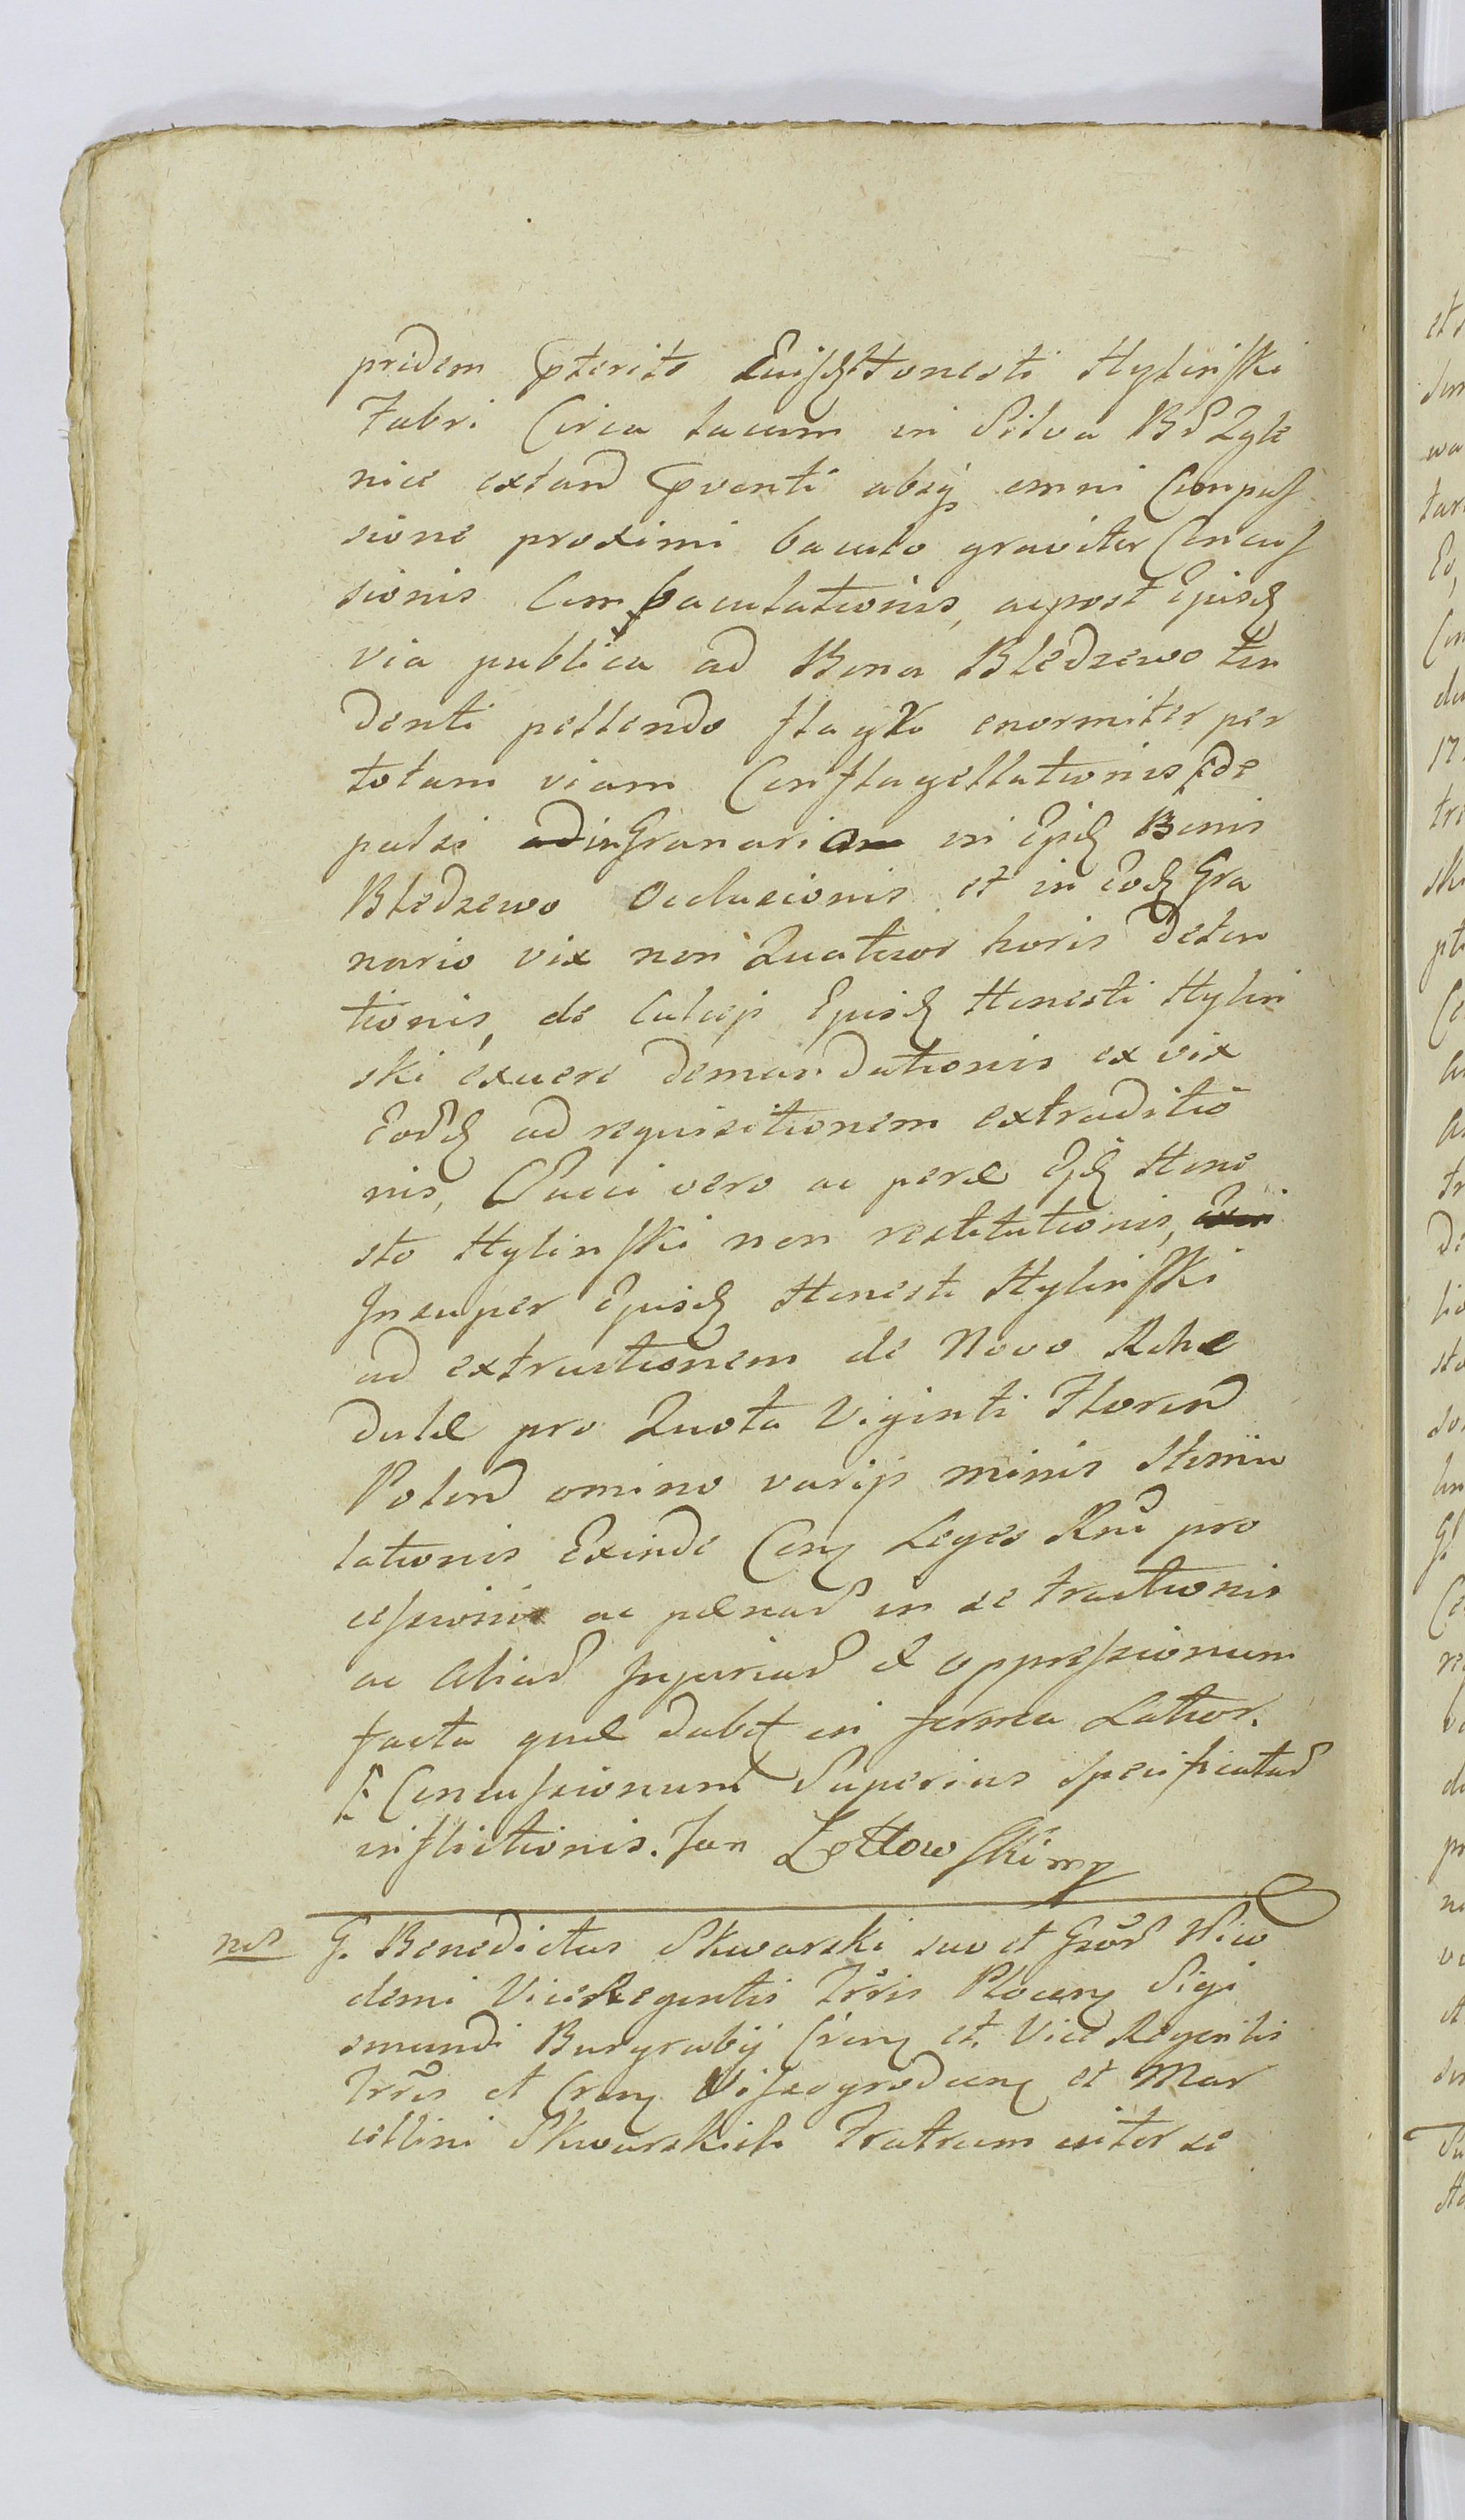 pridem pterito Euisd Honesti Hylinski
Fabri Circa lacum in Silva Bd Zgle
nice extand pventi absq omni Compas
sione proximi baculo graviter Concus
sionis Combaculationis, ac post Episd
via publica ad Bona Bledzewo ten
denti pellendo flagro enormiter per
totam viam Conflagellationis, de
pulsi ad in Granario in Epid Bonis
Bledzewo Occlusionis et in Eod Gra
nario vix non Quatuor horis deten
tionis, de Calceis Epusd Honesti Hylin
ski exuere demandationis ex vix
Eod ad requisitionem extraditio
nis, Pacei vero ac peræ Epd Hone
sto Hylinski non restitutionis,
Insuper Epusd Honesti Hylinski
ad extructionem de Novo Rohe
dulæ pro Quota Viginti Floren
Polon omino varijs minis Stimu
lationis Exinde Conz Leges Rni pro
cessionis ac pænas in se tractionis
ac Alias Injurias et oppressionum
facta quæ dabt in forma Latior.
Concussionum Superius Specificatas
inflictionis. Jan Lettowski mp
ns G. Benedictus Skwarski suo et Gsor Nico
demi ViceRegentis Trris Plocenz Sigi
smundi Burgrabij Crenz et Vice Regentis
Trris et Crenz Viszogrodcenz et Mar
cellini Skwarskich Fratrum inter se